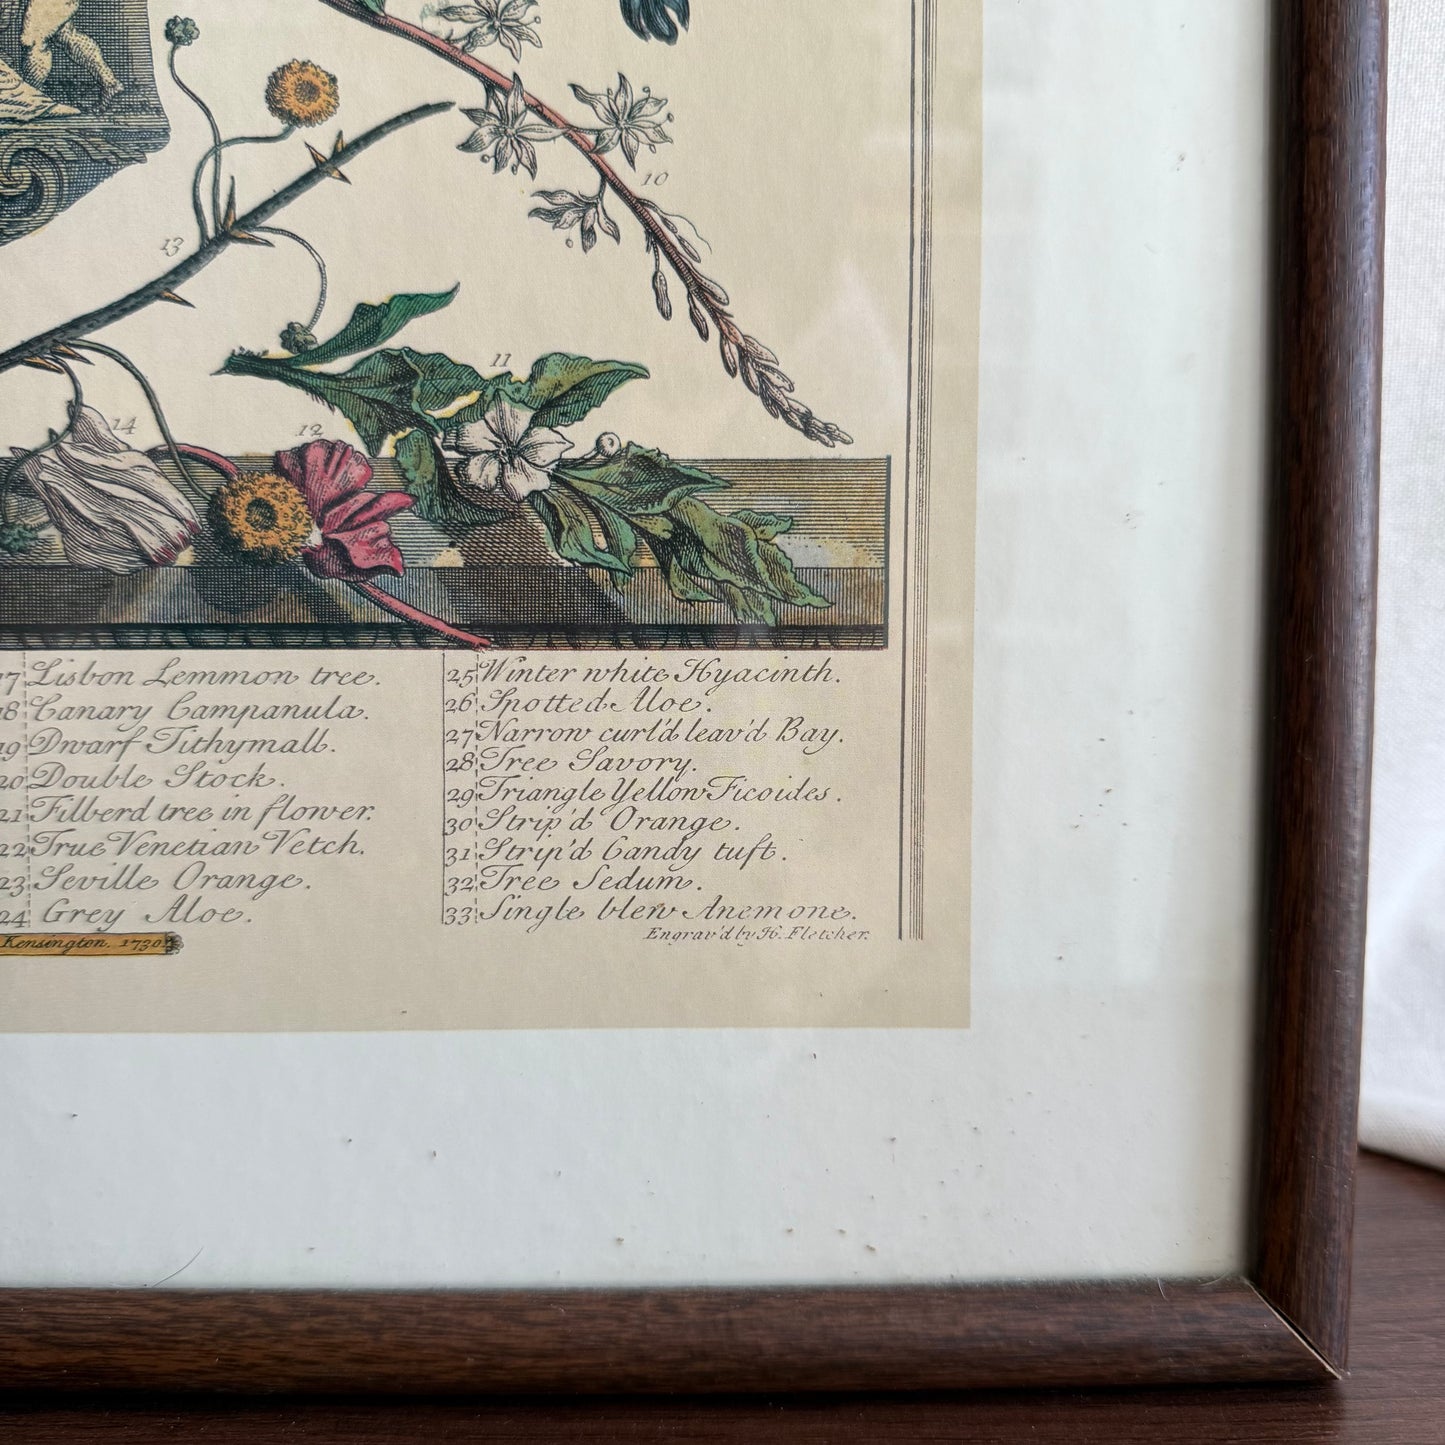 10
13
11
14
12
17 Lisbon Lemmon tree.
18 Canary Campanula.
19 Dwarf Tithymall.
20 Double Stock.
21 Filberd tree in flower.
22 True Venetian Vetch.
23 Seville Orange.
24 Grey Aloe.
25 Winter white Hyacinth.
26 Spotted Aloe.
27 Narrow curl'd leav'd Bay.
28 Tree Savory.
29 Triangle Yellow Ficoides.
30 Strip'd Orange.
31 Strip'd Candy tuft.
32 Tree Sedum.
33 Single blew Anemone.
Kensington. 1730
Engrav'd by H. Fletcher.